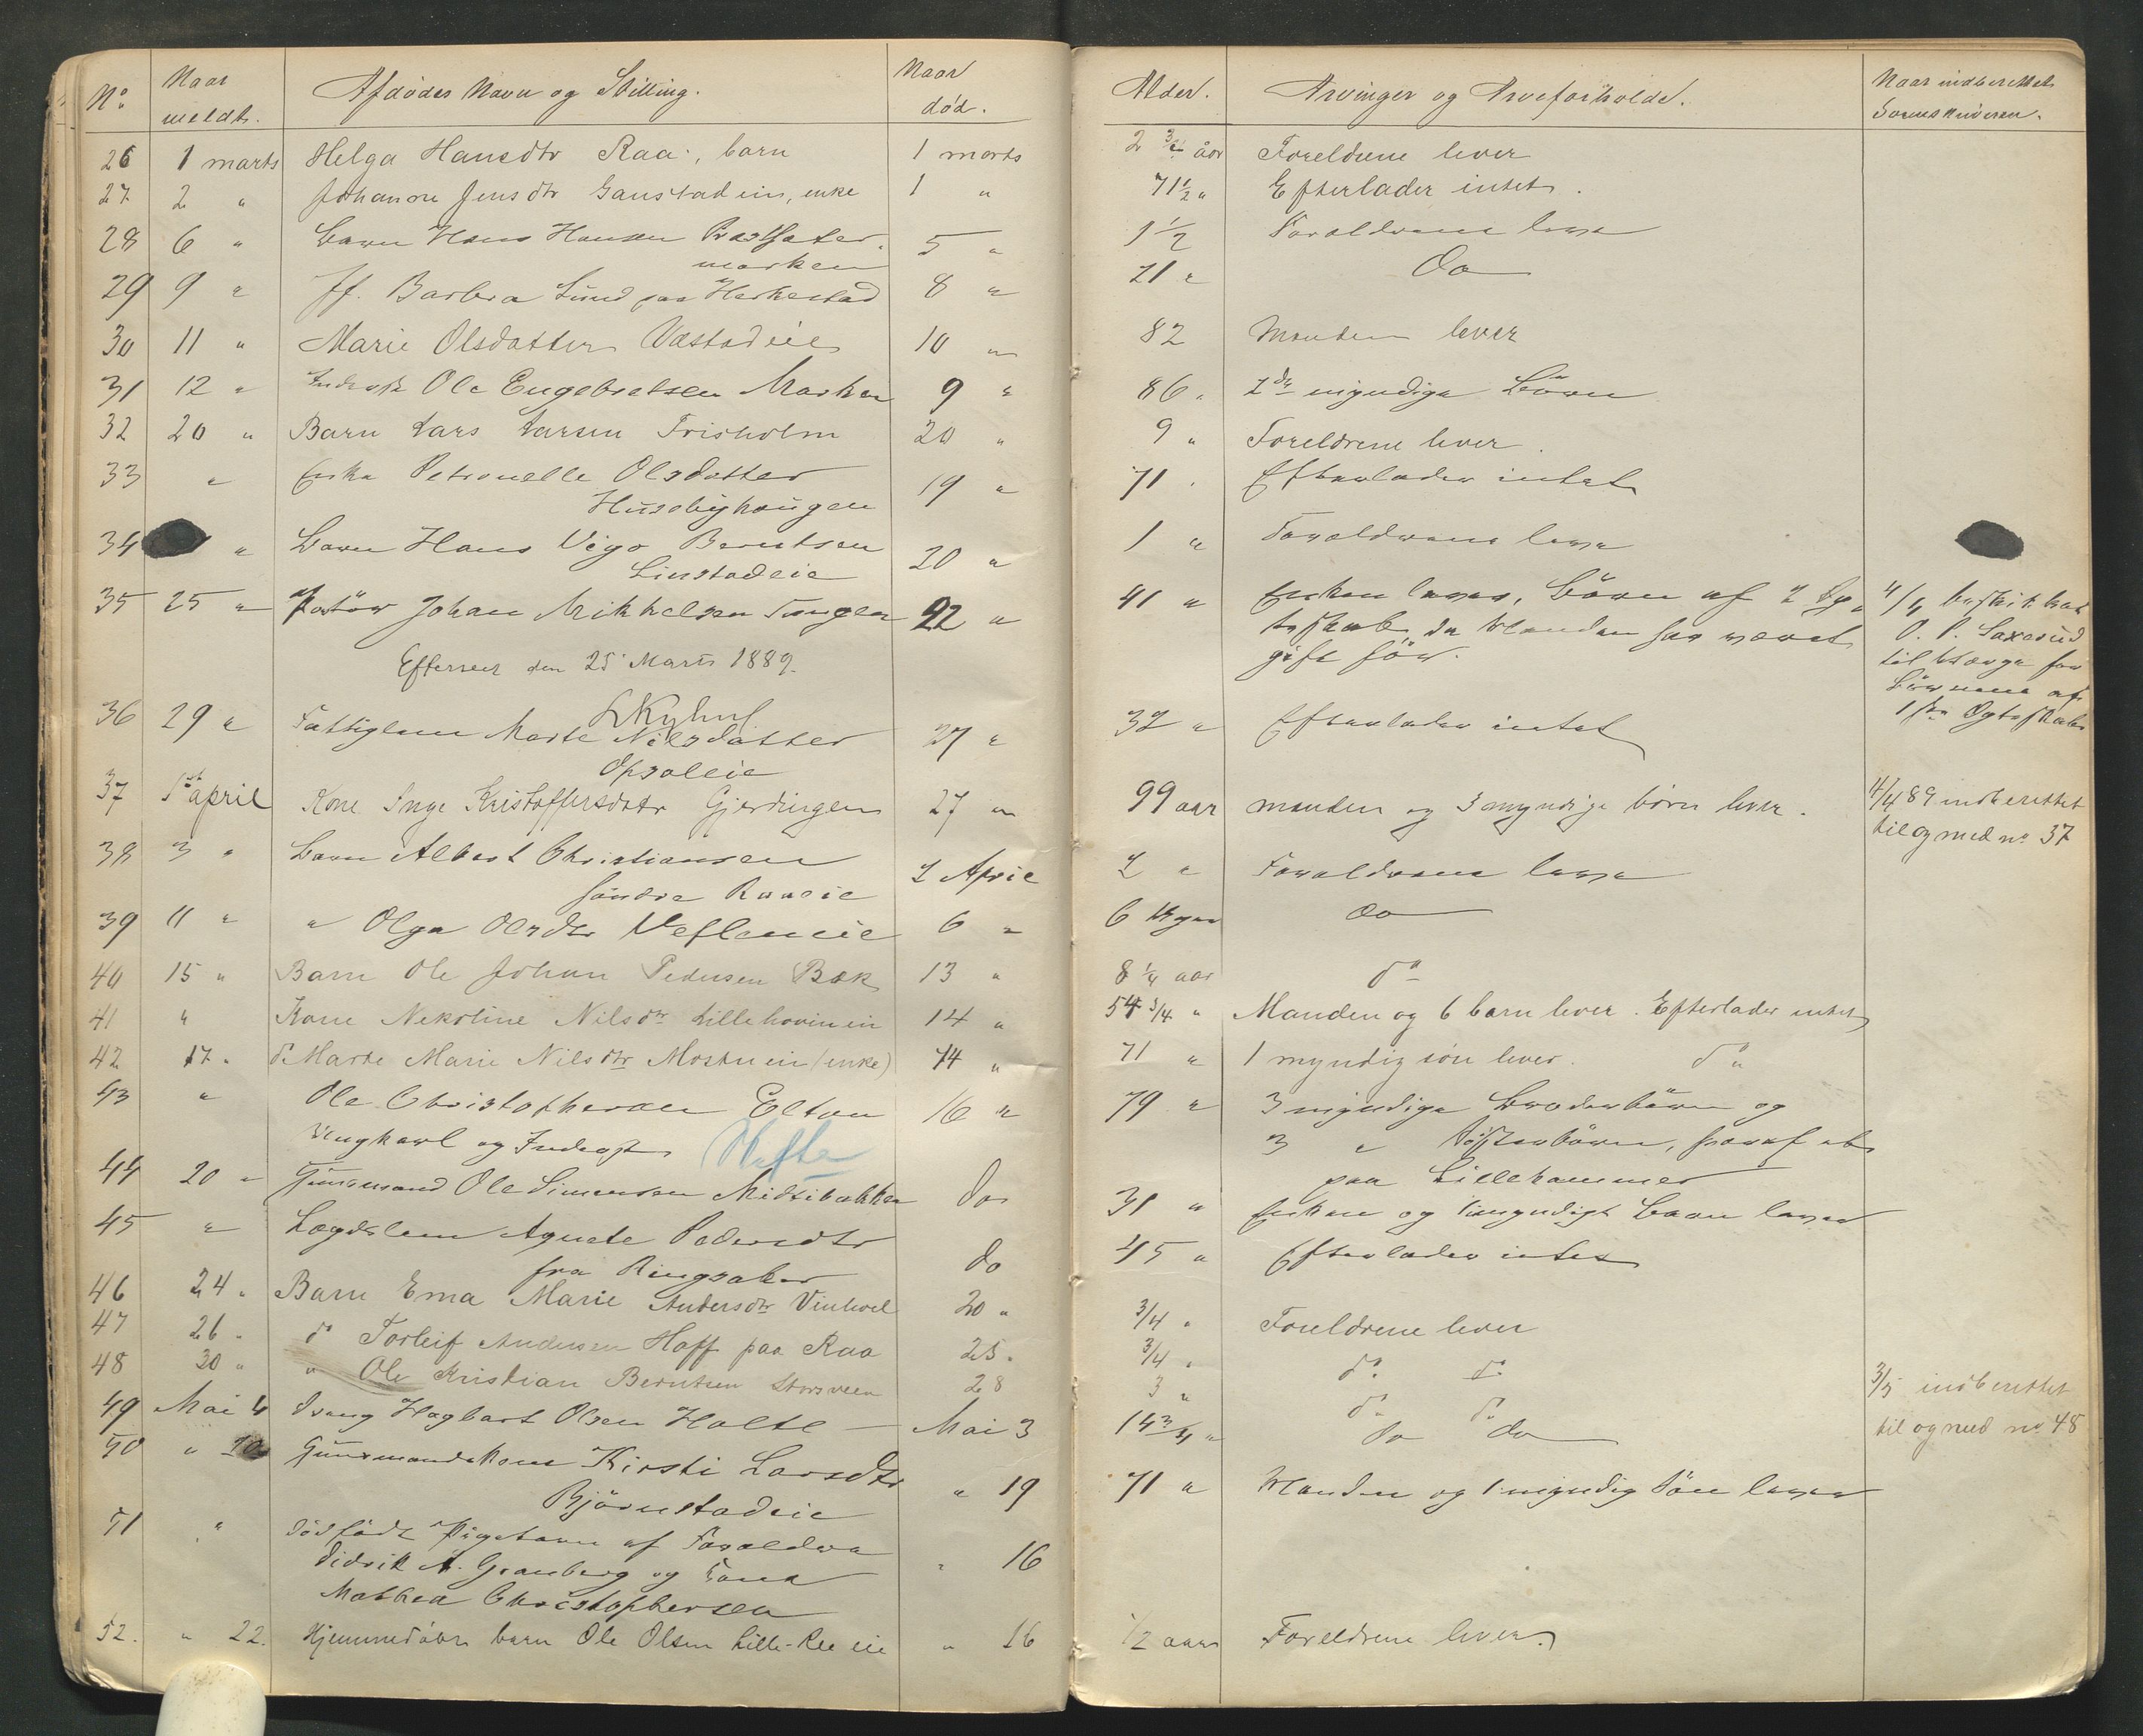 No Naar meldt. Afdødes Navn og Stilling. Naar død. Alder. Arvinger og Arveforholde. Naar indberettet Sorenskriveren.
26 1 marts Helga Hansdtr Raa, barn 1 marts 2 3/4 aar Foreldrene lever
27 2 " Johanne Jensdtr Ganstadeie, enke 1 " 71 1/2 " Efterlader intet.
28 6 " Barn Hans Hansen 5 " 1 1/2 Forældrene leve
marken
29 9 " Barbra Lund paa Herkestad 8 " 21 " Do
30 11 " Marie Olsdatter Vestadeie 10 " 82 Manden lever
31 12 " Inderst Ole Engebretsen Marken 9 " 86 " 2de myndige Börn
32 20 " Barn Lars Larsen Frisholm 20 " 9 " Foreldrene lever.
33 " Enke Petronelle Olsdatter 19 " 71 " Efterlader intet
Husebyhaugen
34 " Barn Hans Vigo Berntsen 20 " 1 " Forældrene leve
Linstadeie
35 25 " Johan Mikkelsen 22 " 41 " Enken lever, Börn af 2
da Manden har været
gift för.
O. P. Saxerud
til Værge for
Börnene af
1ste Egteskab
Efterseet den 25 Marts 1889.
36 29 " Fattiglem Marte Nilsdatter 27 " 32 " Efterlader intet
Opsaleie
37 1st april Kone Inge Kristoffersdatr Gjerdingen 27 " 99 aar manden og 3 myndige börn lever. 4/4 89 indberettet
til og med no 37
38 3 " Barn Albert Christiansen 2 April 2 " Forældrene leve
Söndre Raaeie
39 11 " " Olga Olsdtr Vefleneie 6 " 6 Uger do
40 15 " Barn Ole Johan Pedersen Bæk 13 " 8 1/4 aar do
41 " Kone Nekoline Nilsdtr Lillehovineie 14 " 54 3/4 " Manden og 6 barn lever. Efterlader intet
42 17 " do Marte Marie Nilsdtr Mostueie (enke) 14 " 71 " 1 myndig sön lever. do
43 " Ole Christophersen Elton 16 " 79 " 3 myndige Broderbörn og
Ungkarl og Inderst Hefte 3 " Sösterbörn, hvoraf et
paa Lillehammer
44 20 " Huusmand Ole Simensen Midtibakken do 31 " Enken og 1 umyndigt Barn lever
45 " Lægdslem Agnete Pedersdtr do 45 " Efterlader intet
fra Ringsaker
46 24 " Barn Ema Marie Andersdtr Vinkvel 20 " 3/4 " Foreldrene lever
47 26 " do Torleif Andersen Hoff paa Raa 25 " 3/4 " do do
48 30 " " Ole Kristian Berntsen Storsveen 28 3 " do do 3/5 indberettet
til og med no 48
49 Mai 4 Dreng Hagbart Olsen Holte Mai 3 14 3/4 " do do
50 " 20 Huusmandskone Kirsti Larsdtr " 19 71 " Manden og 1 myndig Sön lever
Björnstadeie
51 " Dödfödt Pigebarn af Forældre " 16
Didrik A. Granberg og Kone
Mathea Christophersen
52. " 22. Hjemmedöbt barn Ole Olsen Lille-Ree eie " 16 1/2 aar Foreldrene lever.